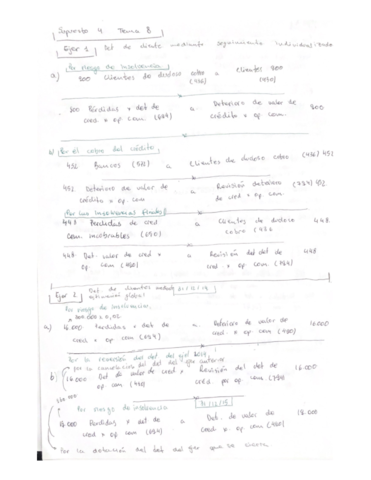 Supuesto 4 Tema 8
Ejer 1 Det de clientes mediante seguimiento individualizado
a) Por riesgo de insolvencia
800 Clientes de dudoso cobro a Clientes 800
(436) (430)
800 Pérdidas x det de a Deterioro de valor de 800
cred x op com (694) crédito x op com.
b) Por el cobro del crédito
Bancos (572) a Clientes de dudoso cobro (436)
Deterioro de valor de a Reversión deterioro
crédito x op com de cred x op com
Por las insolvencias firmes
448 Perdidas de cred a Clientes de dudoso 448
com incobrables (650) cobro (436
448 Det. valor de cred x a Reversión del det de 448
op com (490) cred x op com (794)
Ejer 2 Det de clientes 31/12/
global
Por riesgo de insolvencia
a) 16.000 Perdidas x det de a Deterioro de valor de 16.000
cred x op com (694) cred x op com (490)
Por la reversión del det del ejer
por la cancelación del det del ejer anterior
b) 16.000 Det de valor de cred x a Reversión del det de 16.000
op com (490) cred por op com (794)
Por riesgo de insolvencia 31/12/
Perdidas x det de a Det. de valor de
cred x op com (694) cred x op com (490)
Por la dotación del det del ejer que se cierra